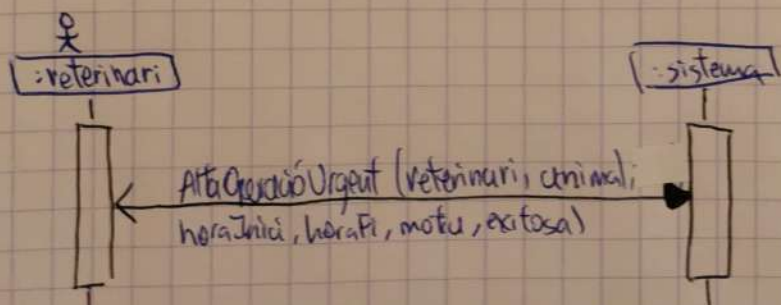 :veterinari
:sistema
AltaOperacióUrgent (veterinari, animal,
horaInici, horaFi, motiu, exitosa)